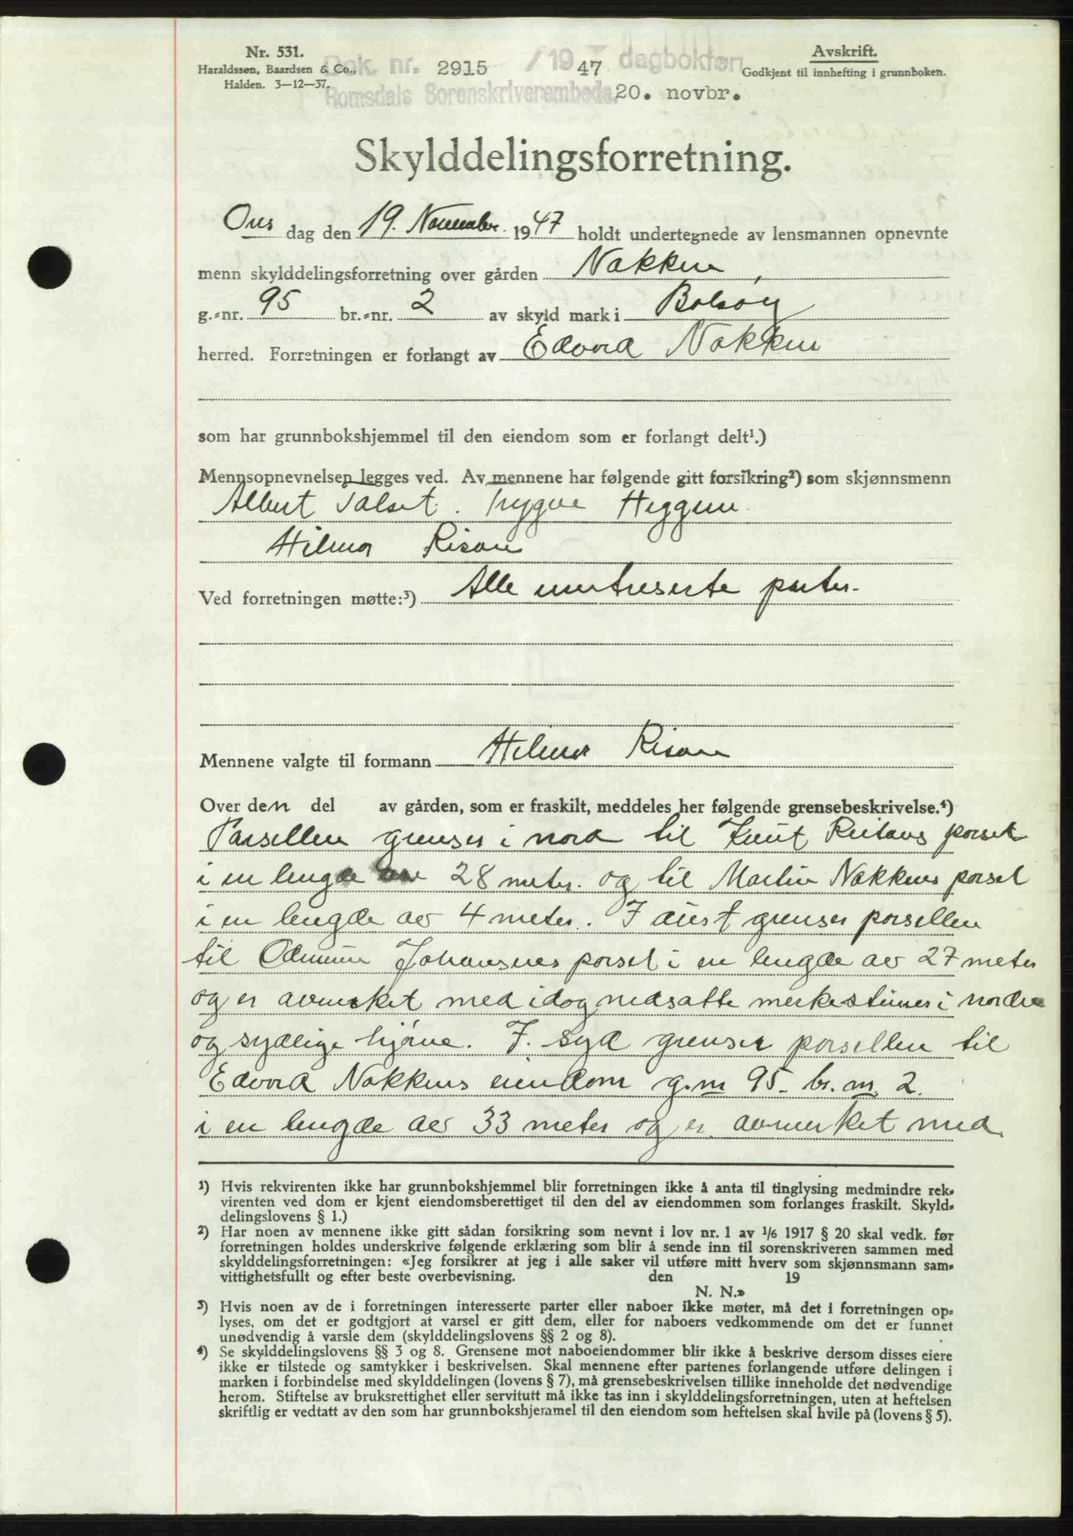 Nr. 531.
Haraldssen, Baardsen & Co.,
Halden. 3—12—37.
Dok. nr. 2915 /19 47 dagbokføn
Romsdals Sorenskriverembede. 20. novbr.
Avskrift.
Godkjent til innhefting i grunnboken.
Skylddelingsforretning.
Ons dag den 19. November 1947 holdt undertegnede av lensmannen opnevnte
menn skylddelingsforretning over gården Nakken,
g.-nr. 95 br.-nr. 2 av skyld mark i Bolsøy
herred. Forretningen er forlangt av Edvard Nakken
som har grunnbokshjemmel til den eiendom som er forlangt delt¹.)
Mennsopnevnelsen legges ved. Av mennene har følgende gitt forsikring²) som skjønnsmenn
Albert Talset. Trygve Heggem
Hilmar Risan
Ved forretningen møtte:³) Alle interesserte parter.
Mennene valgte til formann Hilmar Risan
Over den del av gården, som er fraskilt, meddeles her følgende grensebeskrivelse.⁴)
Parsellen grenser i nord til Knut Reitans parsel
i en lengde av 28 meter. og til Martin Nakkens parsel
i en lengde av 4 meter. I aust grenser parsellen
til Johansens parsel i en lengde av 27 meter
og er avmerket med idag nedsatte merkesteiner i nordre
og sydlige hjørne. I. Syd grenser parsellen til
Edvard Nakkens eiendom g.nr 95. br. nr. 2.
i en lengde av 33 meter og er avmerket med
¹) Hvis rekvirenten ikke har grunnbokshjemmel blir forretningen ikke å anta til tinglysing medmindre rek-
virenten ved dom er kjent eiendomsberettiget til den del av eiendommen som forlanges fraskilt. Skyld-
delingslovens § 1.)
²) Har noen av mennene ikke gitt sådan forsikring som nevnt i lov nr. 1 av 1/6 1917 § 20 skal vedk. før
forretningen holdes underskrive følgende erklæring som blir å sende inn til sorenskriveren sammen med
skylddelingsforretningen: «Jeg forsikrer at jeg i alle saker vil utføre mitt hverv som skjønnsmann sam-
vittighetsfullt og efter beste overbevisning. den 19
N. N.»
³) Hvis noen av de i forretningen interesserte parter eller naboer ikke møter, må det i forretningen op-
lyses, om det er godtgjort at varsel er gitt dem, eller for naboers vedkommende om det er funnet
unødvendig å varsle dem (skylddelingslovens §§ 2 og 8).
⁴) Se skylddelingslovens §§ 3 og 8. Grensene mot naboeiendommer blir ikke å beskrive dersom disses eiere
ikke er tilstede og samtykker i beskrivelsen. Skal mennene efter partenes forlangende utføre delingen i
marken i forbindelse med skylddelingen (lovens § 7), må grensebeskrivelsen tillike inneholde det nødvendige
herom. Stiftelse av bruksrettighet eller servitutt må ikke tas inn i skylddelingsforretningen, uten at heftelsen
skriftlig er vedtatt av den som har grunnbokshjemmel til den eiendom som heftelsen skal hvile på (lovens § 5).